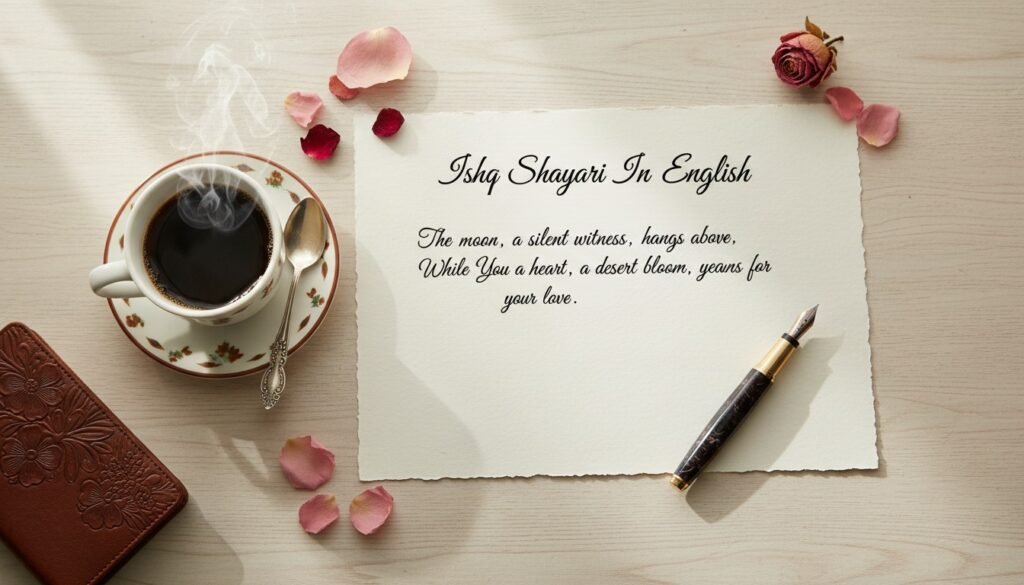 Ishq Shayari In English
The moon, a silent witness, hangs above,
While You a heart, a desert bloom, yeans for
your love.